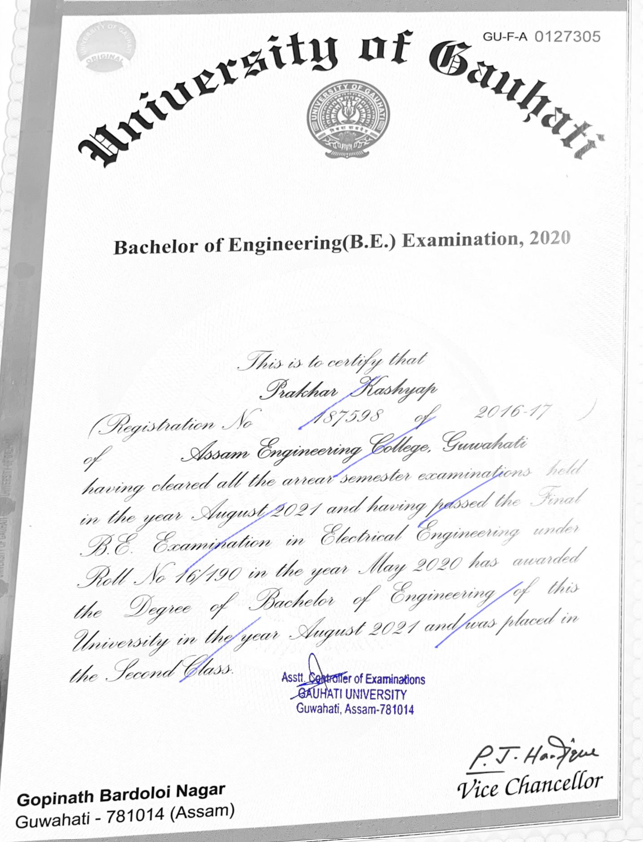 GU-F-A 0127305
University of Gauhati
UNIVERSITY OF GAUHATI
ORIGINAL
Bachelor of Engineering(B.E.) Examination, 2020
This is to certify that
Prakhar Kashyap
(Registration No 187598 of 2016-17 )
of Assam Engineering College, Guwahati
having cleared all the arrear semester examinations held
in the year August 2021 and having passed the Final
B.E. Examination in Electrical Engineering under
Roll No 16/190 in the year May 2020 has awarded
the Degree of Bachelor of Engineering of this
University in the year August 2021 and was placed in
the Second Class.
Asstt. Controller of Examinations
GAUHATI UNIVERSITY
Guwahati, Assam-781014
P. J. Handique
Vice Chancellor
Gopinath Bardoloi Nagar
Guwahati - 781014 (Assam)